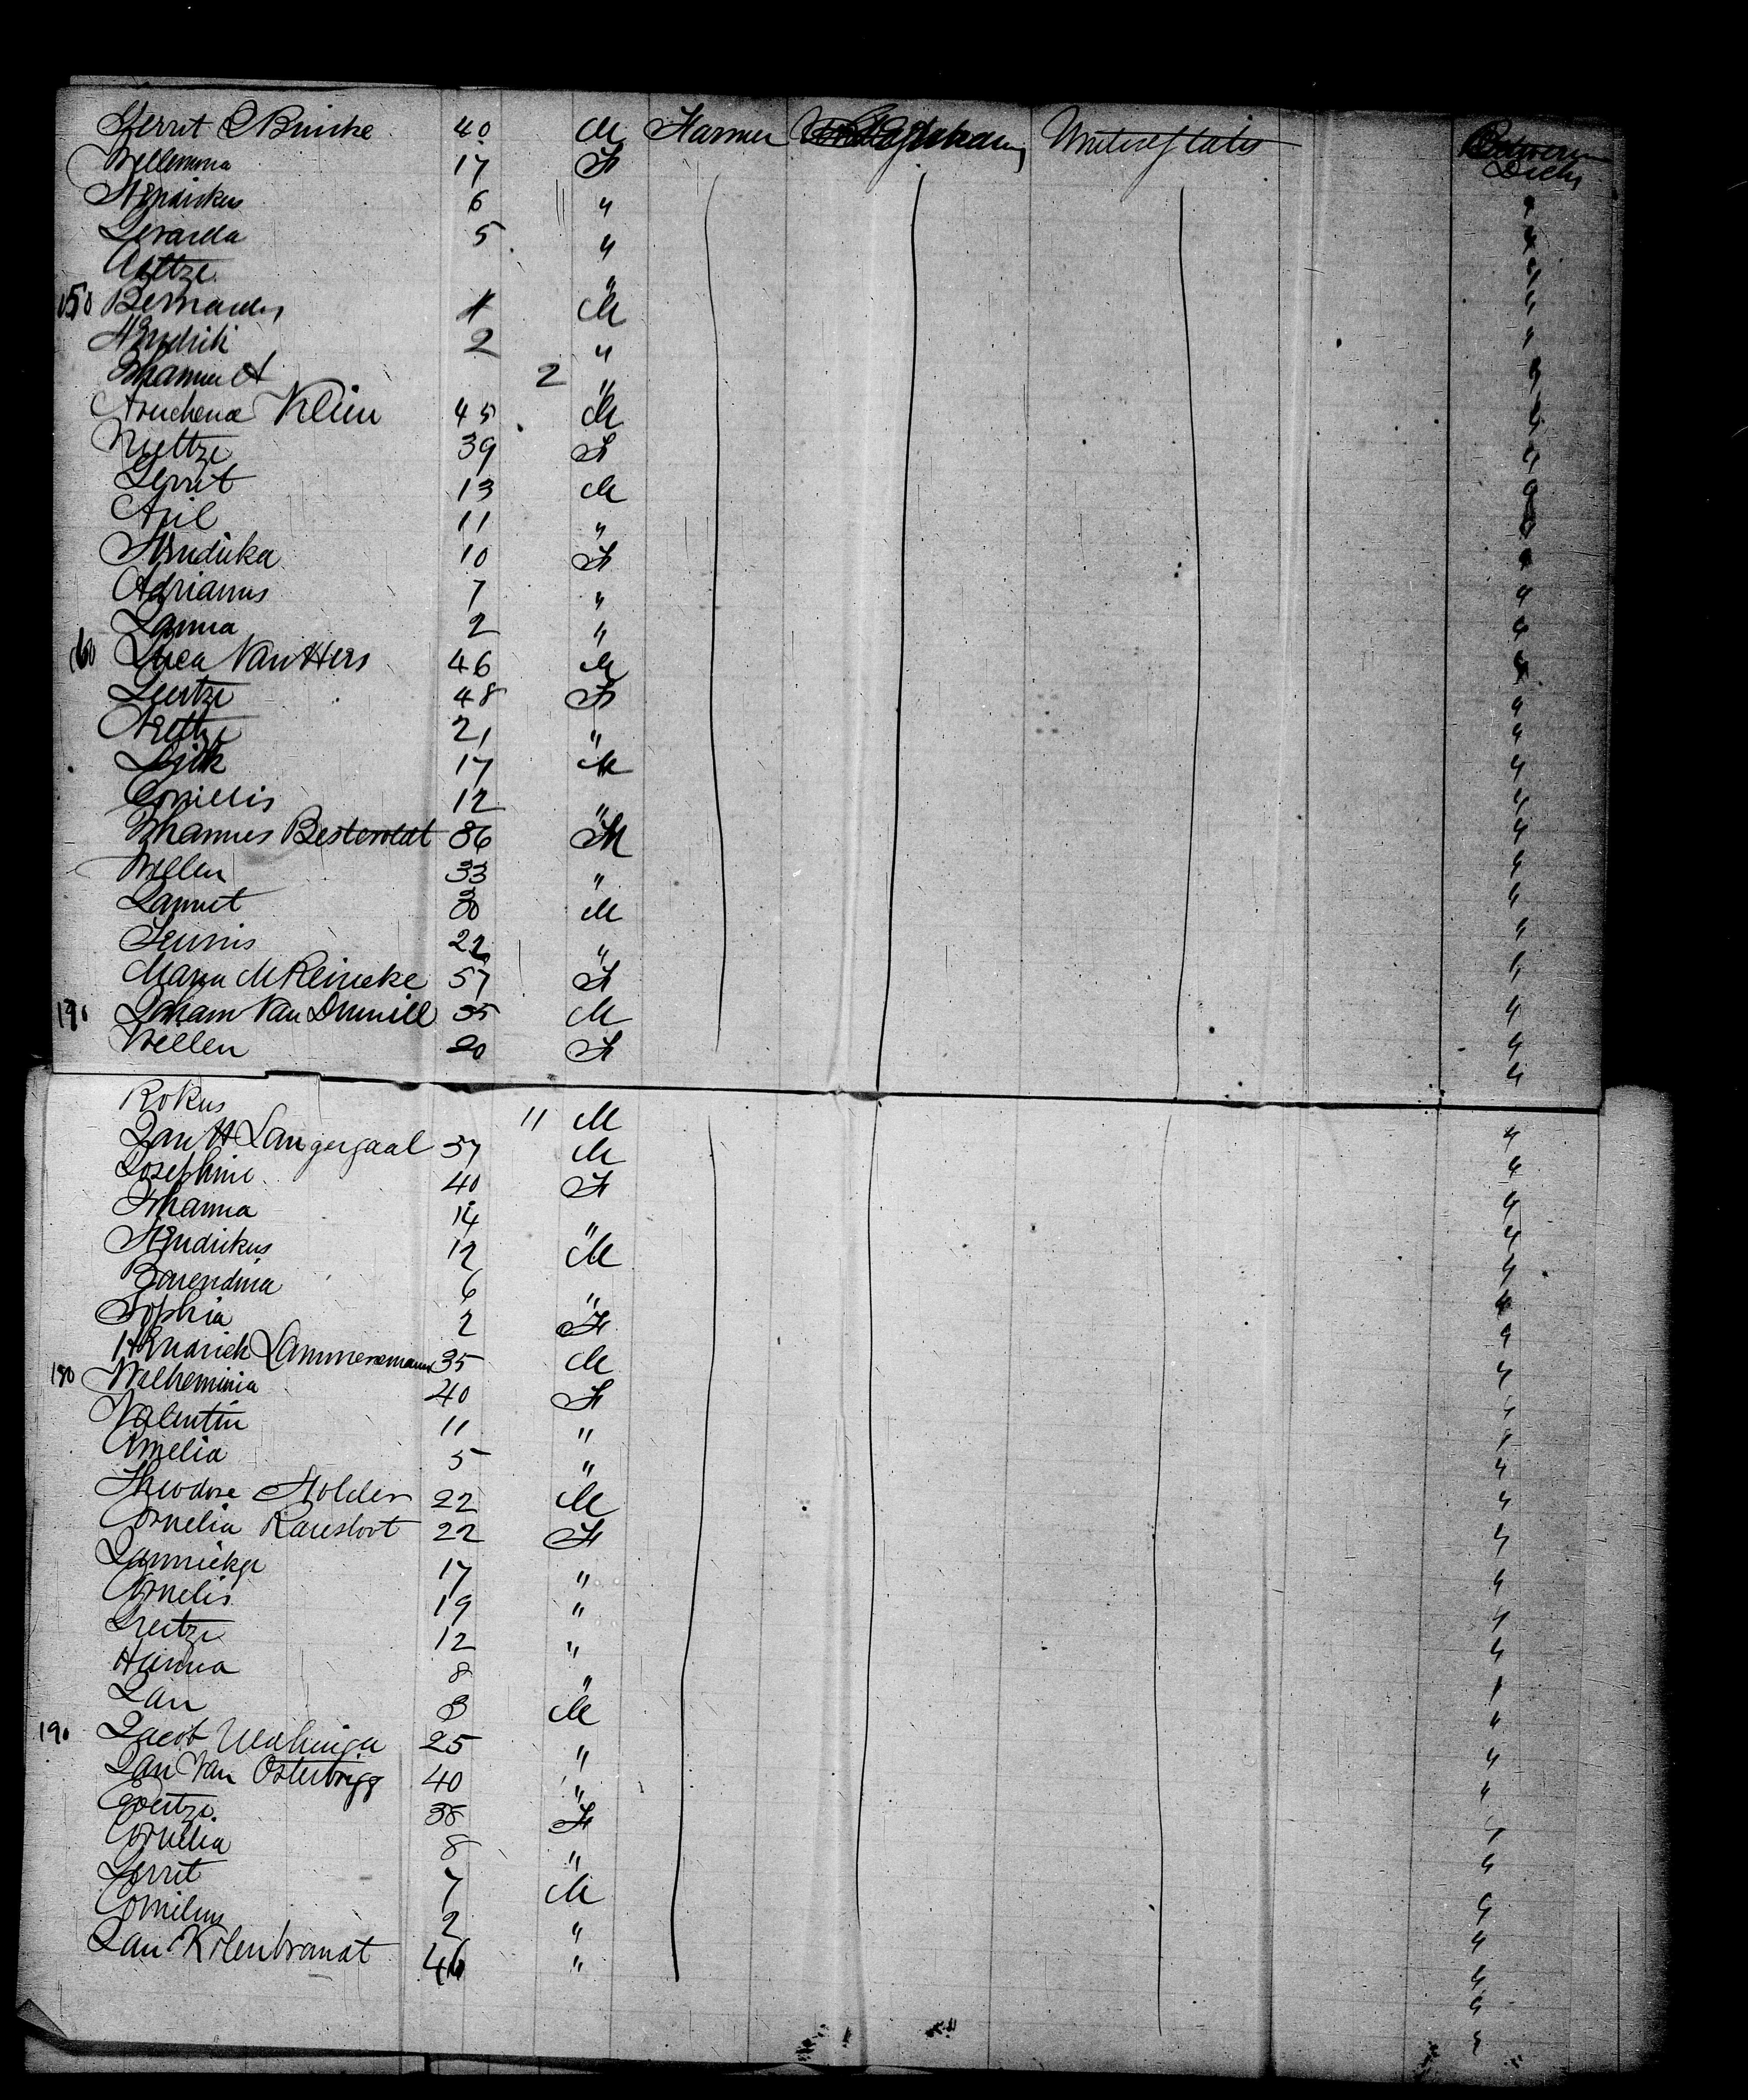 Gerrit L Bruicke 40 M Farmer United States Between Decks
Willemina 17 F
Hendrikus 6 "
Gerarda 5 "
Aaltze "
150 Bernardus 4 M
Hendrik 2 "
Johannes A 2 "
Klein 45 M
Neeltze 39 F
Gerrit 13 M
Ariel 11 "
Hendrika 10 F
Adrianus 7 "
Janna 2 "
160 Luca Van Hers 46 M
Geertze 48 F
Neeltze 21 "
Dirk 17 M
Cornelis 12 "
Johannes Besteroldt 36 M
Willem 33 "
Lammert 30 M
Teunis 22 "
Maria M Reineke 57 F
170 Johann Van Drumill 35 M
Willem 20 F
Rokus 11 M
Jan H Langergaal 37 M
Josephine 40 F
Johanna 14 "
Hendrikus 12 M
Barendina 6 "
Sophia 2 F
Hendrick Lammersmann 35 M
180 Wilhemina 40 F
Valentin 11 "
Amelia 5 "
Theodore Holder 22 M
Cornelia Raesloot 22 F
Jannickje 17 "
Cornelis 19 "
Geertze 12 "
Hanna 8 "
Jan 3 M
190 Jacob Walinga 25 "
Jan Van Osterbrigg 40 "
Goertze 38 F
Cornelia 8 "
Gerrit 7 M
Cornelius 2 "
Jan Kolenbrandt 46 "